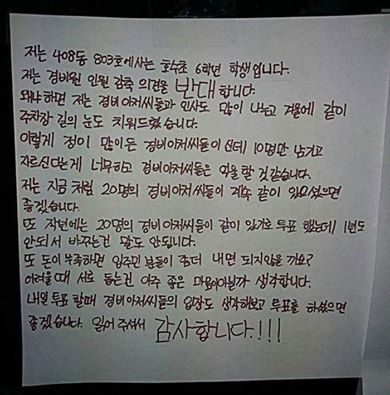 저는 408동 803호에사는 호수초 6학년 학생입니다.
저는 경비원 인원 감축 의견을 반대합니다.
왜냐하면 저는 경비아저씨들과 인사도 많이 나누고 겨울에 같이
주차장 길의 눈도 치워드렸습니다.
이렇게 정이 많이든 경비아저씨들이신데 10명만 남기고
자르신다는게 너무하고 경비아저씨들은 억울 할 것같습니다.
저는 지금 처럼 20명의 경비아저씨들이 계속 같이 있으셨으면
좋겠습니다.
또 작년에는 20명의 경비아저씨들이 같이 있기로 투표 했는데 1년도
안되서 바꾸는건 말도 안됩니다.
또 돈이 부족하면 입주민 분들이 좀더 내면 되지않을 까요?
어려울 때 서로 돕는건 아주 좋은 마음이아닐까 생각합니다.
내일 투표 할때 경비아저씨들의 입장도 생각해보고 투표를 하셨으면
좋겠습니다. 읽어 주셔서 감사합니다.!!!